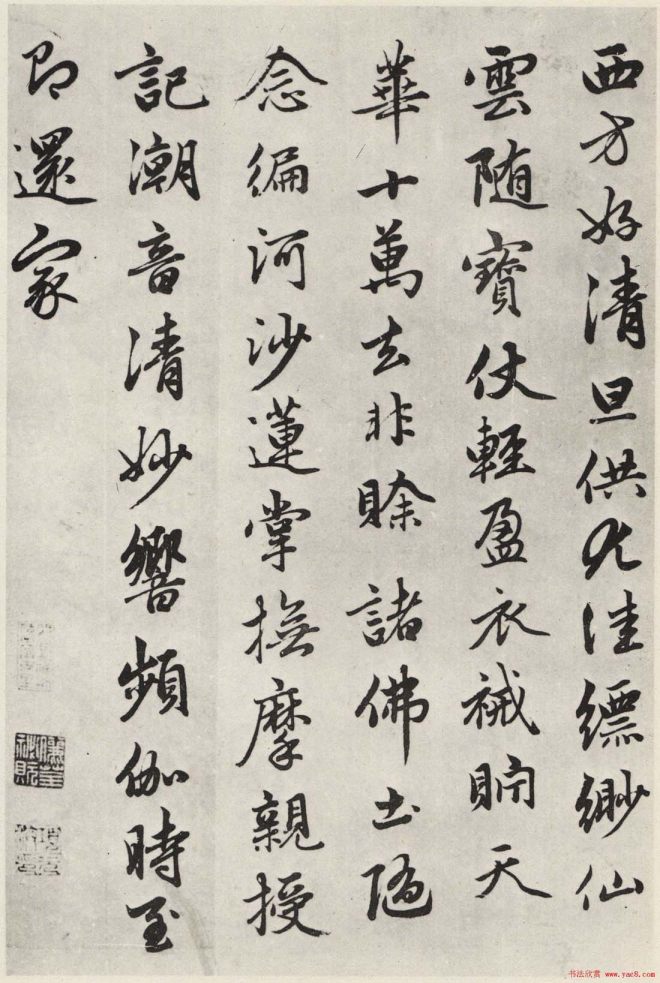 西方好清旦供尤佳縹緲仙
雲随寶仗輕盈衣祴貯天
華十萬去非賒諸佛土随
念徧河沙蓮掌撫摩親授
記潮音清妙響頻伽時至
即還家
书法欣赏 www.yac8.com